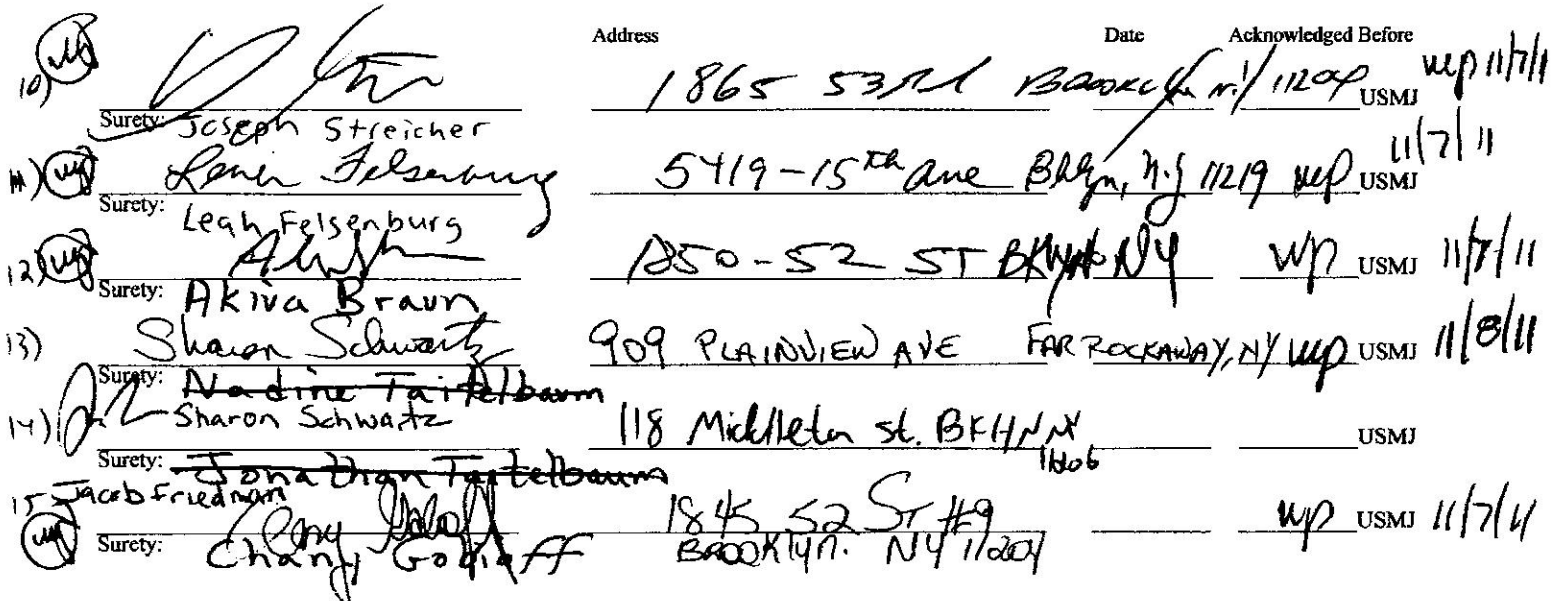 Address Date Acknowledged Before
10) 1865 53rd Brooklyn NY 11204 USMJ 11/7/11
Surety: Joseph Streicher
11) Leah Felsenburg 5419-15th Ave Bklyn, N.Y 11219 USMJ 11/7/11
Surety: Leah Felsenburg
12) 1850-52 ST BKLYN NY USMJ 11/7/11
Surety: Akiva Braun
13) Sharon Schwartz 909 PLAINVIEW AVE FAR ROCKAWAY, NY USMJ 11/8/11
Surety: Nadine Taitelbaum
Sharon Schwartz
14) 118 Middleton St. BKLYN NY USMJ
Surety: Jonathan Taitelbaum
Jacob Friedman
15 1845 52 ST #9 USMJ 11/7/11
BROOKLYN. NY 11204
Surety: Chany